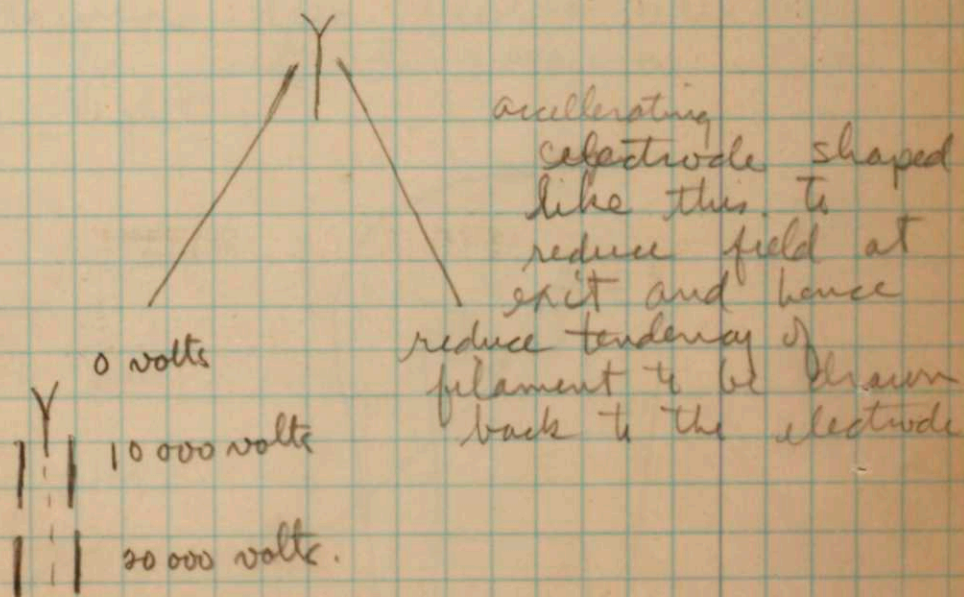 accellerating
electrode shaped
like this. to
reduce field at
exit and hence
reduce tendency of
filament to be drawn
back to the electrode
0 volts
10 000 volts
20 000 volts.